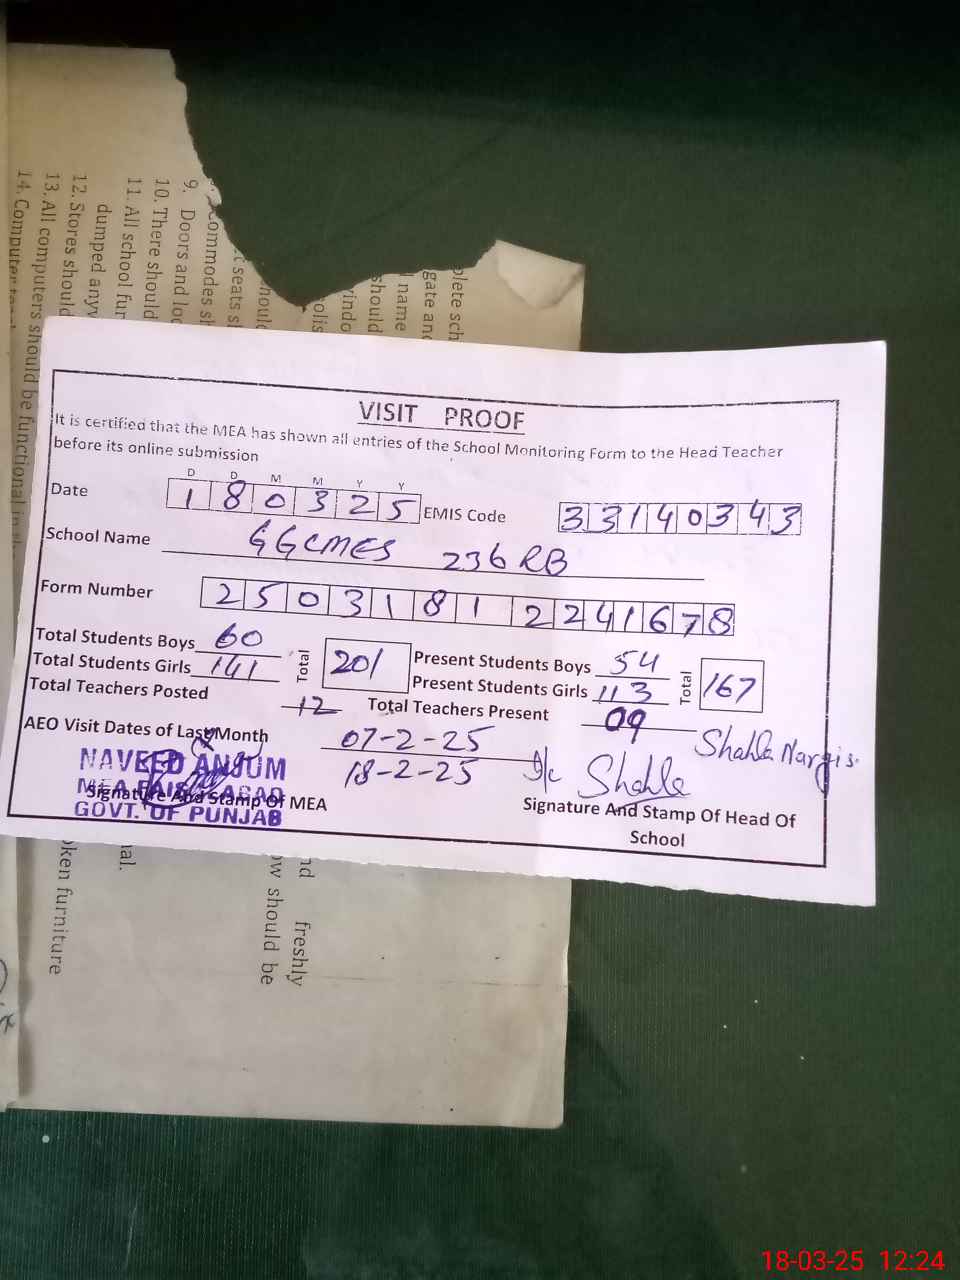 VISIT PROOF
It is certified that the MEA has shown all entries of the School Monitoring Form to the Head Teacher
before its online submission
D D M M Y Y
Date 1 8 0 3 2 5 EMIS Code 3 3 1 4 0 3 4 3
School Name GGCMES 236 RB
Form Number 2 5 0 3 1 8 1 2 2 4 1 6 7 8
Total Students Boys 60 Total 201 Present Students Boys 54 Total 167
Total Students Girls 141 Present Students Girls 113
Total Teachers Posted 12 Total Teachers Present 09
AEO Visit Dates of Last Month 07-2-25 Shahla Nargis.
18-2-25 I/c Shahla
NAVEED ANJUM
MEA FAISALABAD
GOVT. OF PUNJAB
Signature And Stamp Of MEA
Signature And Stamp Of Head Of
School
plete sch
gate and
name
should
windo
olis
should
t seats s
ommodes s
9. Doors and loc
10. There should
11. All school fur
dumped anyw
12. Stores should
13. All computers should be functional in
14. Computer
nd freshly
ow should be
nal.
oken furniture
18-03-25 12:24